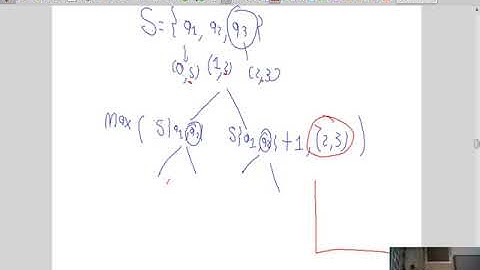 S = { a1, a2, a3 }
(0,5) (1,2) (2,3)
max ( S{a1, a2} S{a1, a2} + 1, (2,3) )